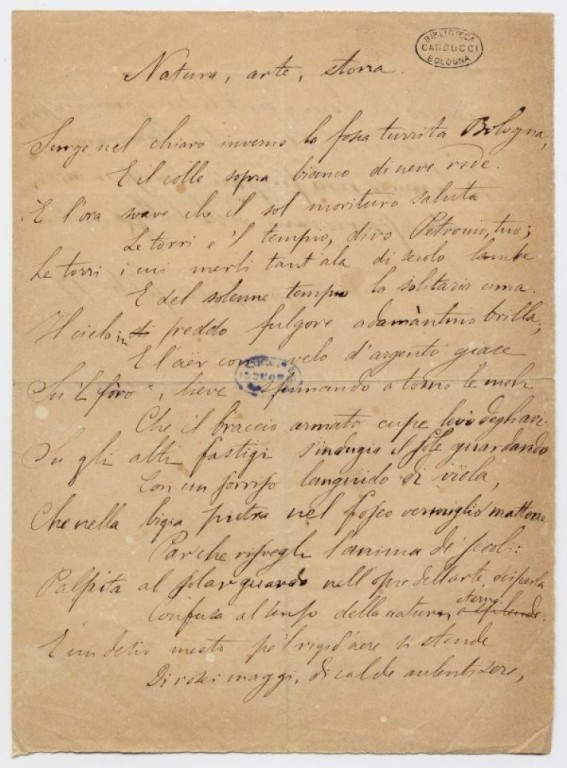 BIBLIOTECA
CARDUCCI
BOLOGNA
Natura, arte, storia.
Surge nel chiaro inverno la fosca turrita Bologna,
E il colle sopra bianco di neve ride.
È l'ora soave che il sol morituro saluta
Le torri e 'l tempio, divo Petronio, tuo;
Le torri i cui merli tant'ala di secolo lambe
E del solenne tempio la solitaria cima.
Il cielo in freddo fulgore adamàntino brilla;
E l'aër come velo d'argento giace
Su 'l fòro, lieve sfumando a torno le moli
Che il braccio armato cupe levò degli avi.
Su gli alti fastigi s'indugia il sole guardando
Con un sorriso languido di vïola,
Che nella bigia pietra nel fosco vermiglio mattone
Par che risvegli l'anima de' secoli:
Palpita al solar guardo nell'opre dell'arte
Confusa al senso della natura eterno
E un desio mesto pe 'l rigid'aere si stende
Di rosei maggi, di calde aulenti sere,